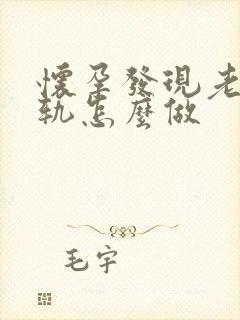 懷孕發現老
軌怎麼做
毛宇